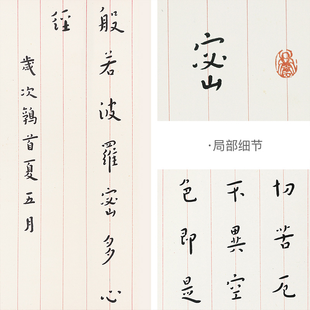 般若波羅蜜多心
經
歲次鶉首夏五月
密
·局部细节
切苦厄
不異空
色即是